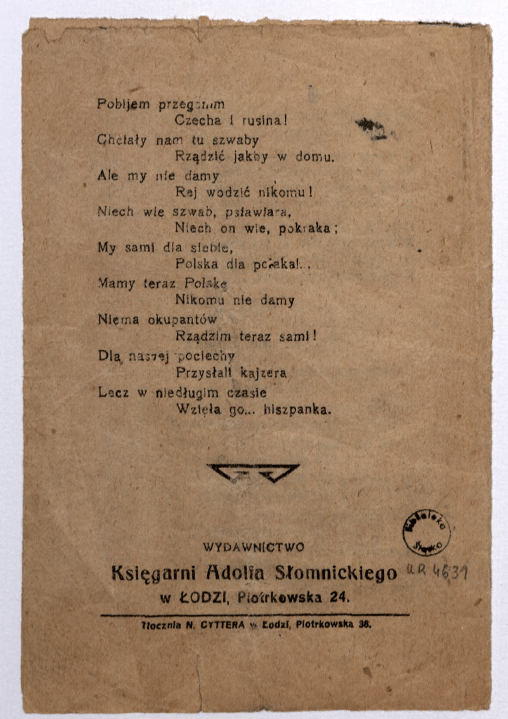 Pobijem przegonim
Czecha i rusina!
Chciały nam tu szwaby
Rządzić jakby w domu.
Ale my nie damy
Rej wodzić nikomu!
Niech wie szwab, psiawiara,
Niech on wie, pokraka;
My sami dla siebie,
Polska dla polaka!..
Mamy teraz Polskę
Nikomu nie damy
Niema okupantów
Rządzim teraz sami!
Dla naszej pociechy
Przysłali kajzera
Lecz w niedługim czasie
Wzięła go... hiszpanka.
WYDAWNICTWO
Księgarni Adolfa Słomnickiego
w ŁODZI, Piotrkowska 24.
Tłocznia N. CYTTERA w Łodzi, Piotrkowska 38.
Biblioteka
Śląska